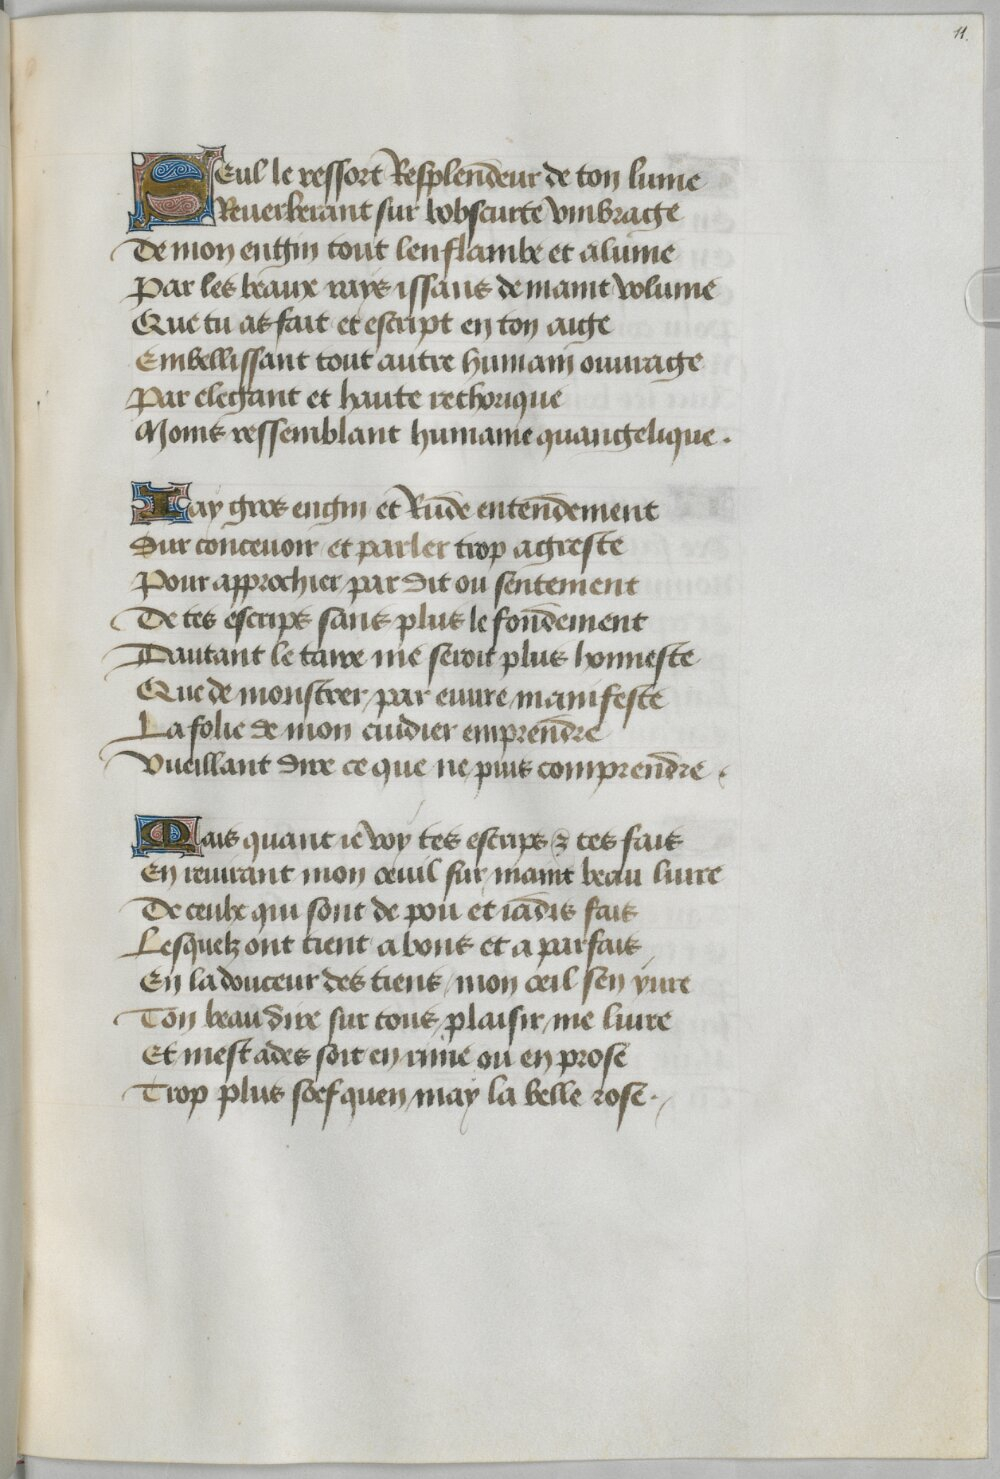 11.
Seul le ressort Resplendeur de ton lume
Reuerberant sur lobscurte vmbrage
De mon engin tout lenflambe et alume
Par les beaux rays issans de maint volume
Que tu as fait et escript en ton aige
Embellissant tout autre humain ouurage
Par elegant et haute rethorique
Moins ressemblant humaine quangelique.
Jay gros engin et Rude entendement
Dur conceuoir et parler trop agreste
Pour approchier par dit ou sentement
De tes escrips sans plus le fondement
Dautant le taire me seroit plus honneste
Que de monstrer par euure manifeste
La folie de mon cuidier emprendre
Vueillant dire ce que ne puis comprendre.
Mais quant ie voy tes escrips & tes fais
En reuirant mon oeuil sur maint beau liure
De ceulx qui sont de pou et iadis fais
Lesquelz ont tient a bons et a parfais
En la douceur des tiens mon oeil sen yure
Ton beau dire sur tous plaisir me liure
Et mest ades soit en rime ou en prose
Trop plus soef quen may la belle rose.